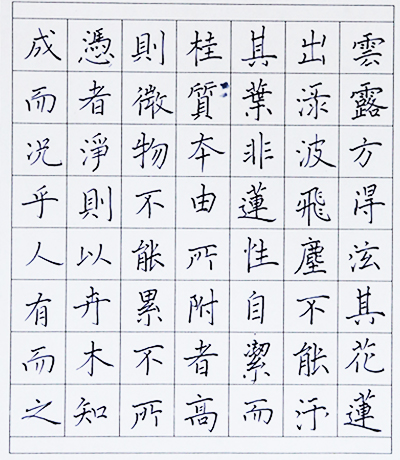 雲露方得泫其花蓮
出渌波飛塵不能汙
其葉非蓮性自潔而
桂質本由所附者高
則微物不能累不所
憑者淨則以卉木知
成而况乎人有而之